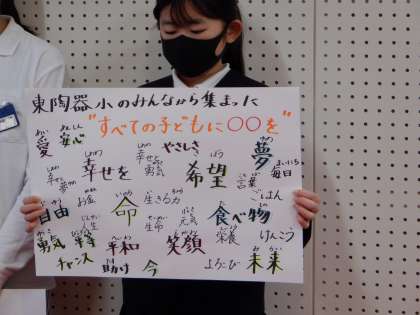 東陶器小のみんなから集まった
"すべての子どもに〇〇を"
愛 安心 幸せを 幸せな勇気 やさしさ 希望 夢 毎日
言葉 ごはん
自由 お金 命 生きる力 食べ物
勇気 人生 平和 生命 元気 笑顔 栄養 けんこう
チャンス 助け 今 よろこび 未来